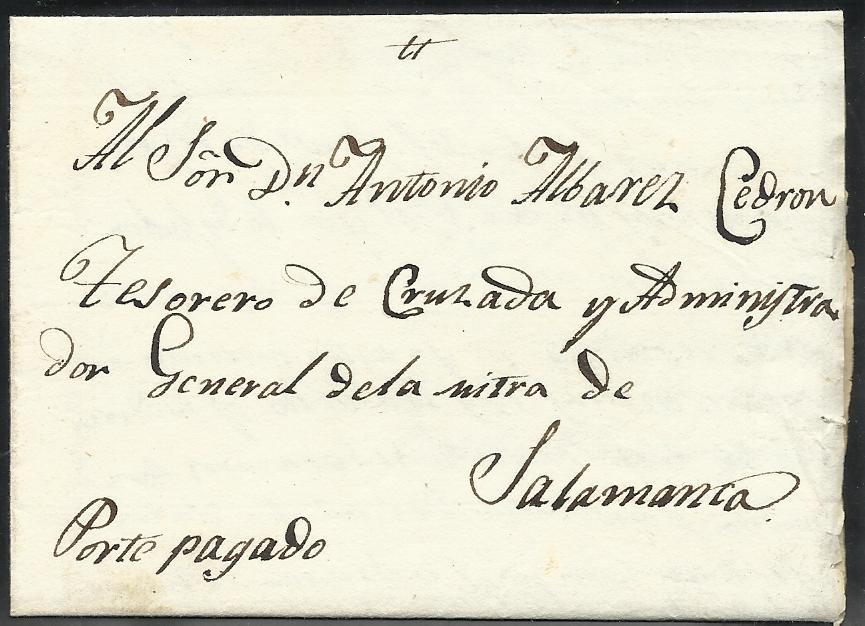 tt
Al Sōr Dn. Antonio Albarez Cedron
Tesorero de Cruzada y Administra
dor General dela mitra de
Salamanca
Porte pagado